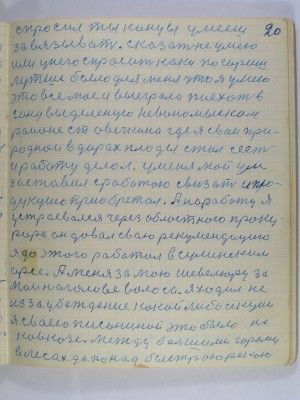 20
спросил ты канувы умееш
завязывать. сказат не умею
или у него спросит как и погориш
лутше было для меня што я умею
это все мое и выеграло поехат в
сону выделеную невиномыским
районе ст овечкина где я сваи при
родной в дарах плоды стал сеять
и работу делол. у меня мой ум
заставил с работаю связат и про
дукцию приобретал. А на работу я
устраевался через областного проку
рора он довал сваю рекумендацию
я до этого работал в сулинским
орсе. А меня за мою шевелюру за
маи на голове волоса. я ходил не
из за убеждение какой либо секции
я сваею писониной это было на
ковказе. между большими горами
в лесах да по над быстраю рекою